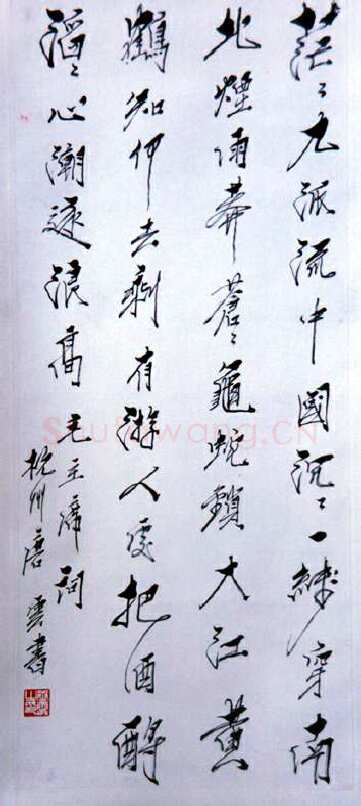 茫〻九派流中國沉〻一綫穿南
北煙雨莽蒼〻龜蛇鎖大江黃
鶴知何去剩有游人處把酒酹
滔〻心潮逐浪高 毛主席詞
杭州唐雲書
Shufawang.CN